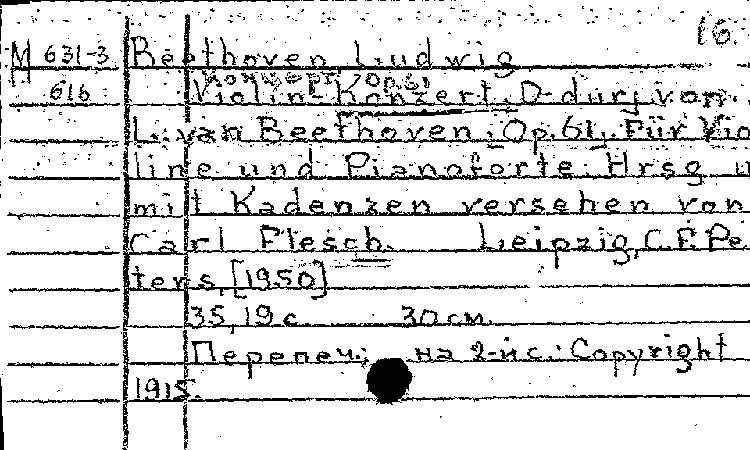 16.
M 631-3 Beethoven Ludwig
Концерт, Op.61
616 Violin-Konzert, D-dur, von
L. van Beethoven, Op. 61. Für Vio
line und Pianoforte. Hrsg u
mit Kadenzen versehen von
Carl Flesch. Leipzig, C. F. Pe
ters, [1950]
35, 19 с. 30 см.
Перепеч.; на 2-й с.: Copyright
1915.